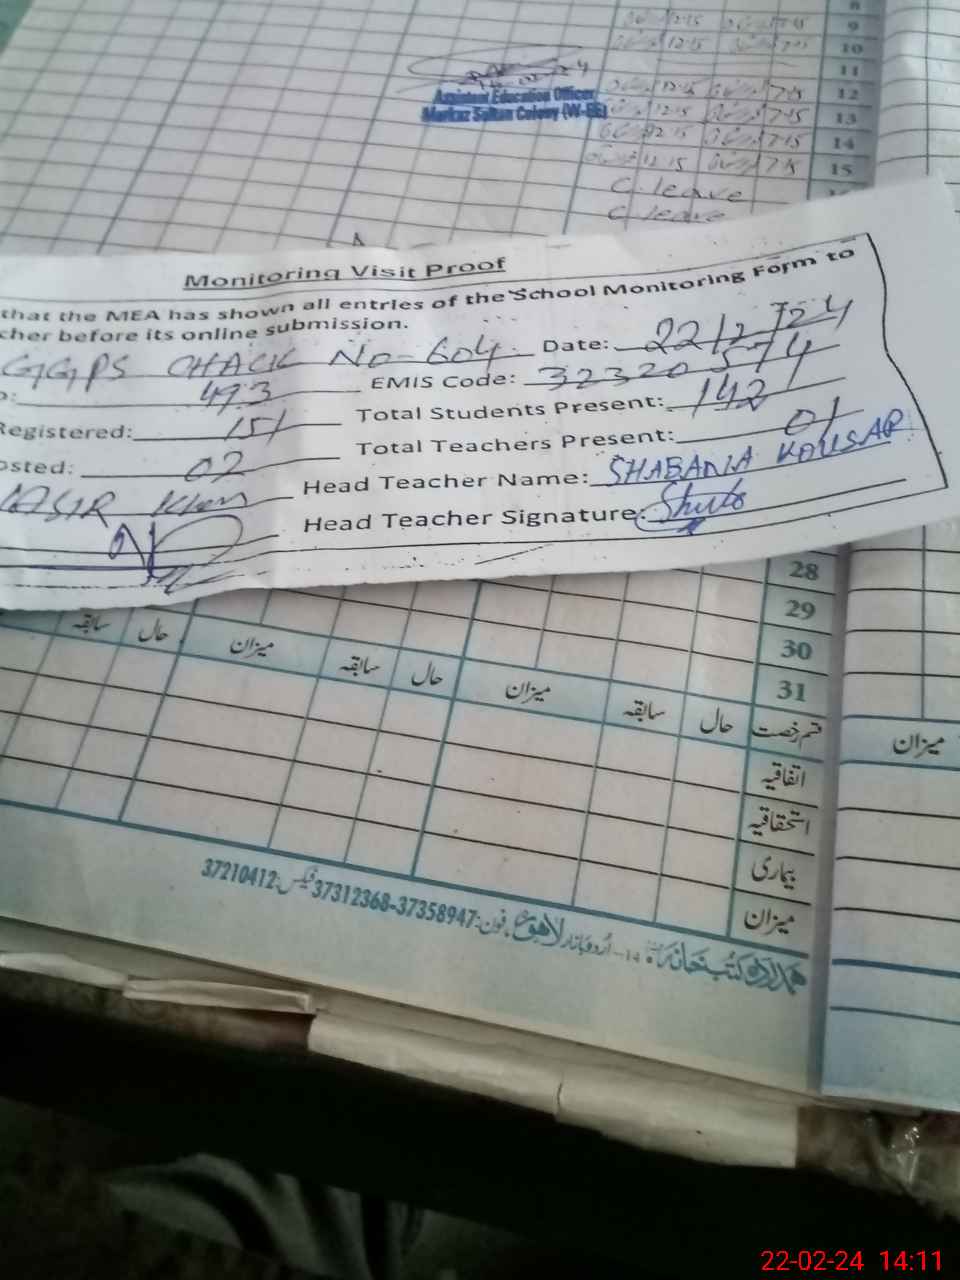 8
9
12-15 7-15
10
12-15
11
12
12-15 7-15
13
12-15 7-15
14
12-15 7-15
15
12-15 7-15
C. leave
C. leave
Assistant Education Officer
Markaz Sultan Colony (W-EE)
Monitoring Visit Proof
that the MEA has shown all entries of the School Monitoring Form to
cher before its online submission.
GGPS CHACK No-604 Date: 22/2/24
493 EMIS Code: 32320574
Registered: 151 Total Students Present: 142
osted: 02 Total Teachers Present: 01
Khan Head Teacher Name: SHABANA KOUSAR
Head Teacher Signature:
28
29
30
31
قسم رخصت حال سابقہ میزان حال سابقہ میزان حال سابقہ
میزان
اتفاقیہ
استحقاقیہ
بیماری
میزان
ہمدرد کتب خانہ 14- اردو بازار لاہور فون: 37358947-37312368 فیکس: 37210412
22-02-24 14:11